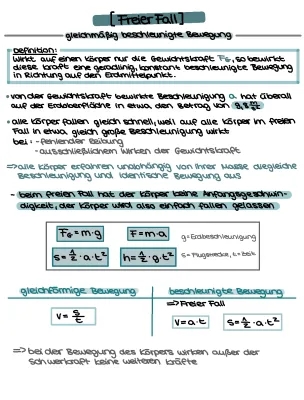 [Freier Fall]
gleichmäßig beschleunigte Bewegung
Definition:
Wirkt auf einen Körper nur die Gewichtskraft FG, so bewirkt
diese Kraft eine geradlinig, konstant beschleunigte Bewegung
in Richtung auf den Erdmittelpunkt.
• von der Gewichtskraft bewirkte Beschleunigung a hat überall
auf der Erdoberfläche in etwa den Betrag von 9,81 m/s²
• alle Körper fallen gleich schnell, weil auf alle Körper im freien
Fall in etwa gleich große Beschleunigung wirkt
bei: - fehlender Reibung
- ausschließlichem Wirken der Gewichtskraft
=> alle Körper erfahren unabhängig von ihrer Masse die gleiche
Beschleunigung und identische Bewegung aus
- beim freien Fall hat der Körper keine Anfangsgeschwin-
digkeit, der Körper wird also einfach fallen gelassen
FG = m·g F = m·a g = Erdbeschleunigung
s = 1/2 · a · t² h = 1/2 · g · t² s = Flugstrecke, t = Zeit
gleichförmige Bewegung beschleunigte Bewegung
=> Freier Fall
v = s/t v = a·t s = 1/2 · a · t²
=> bei der Bewegung des Körpers wirken außer der
Schwerkraft keine weiteren Kräfte